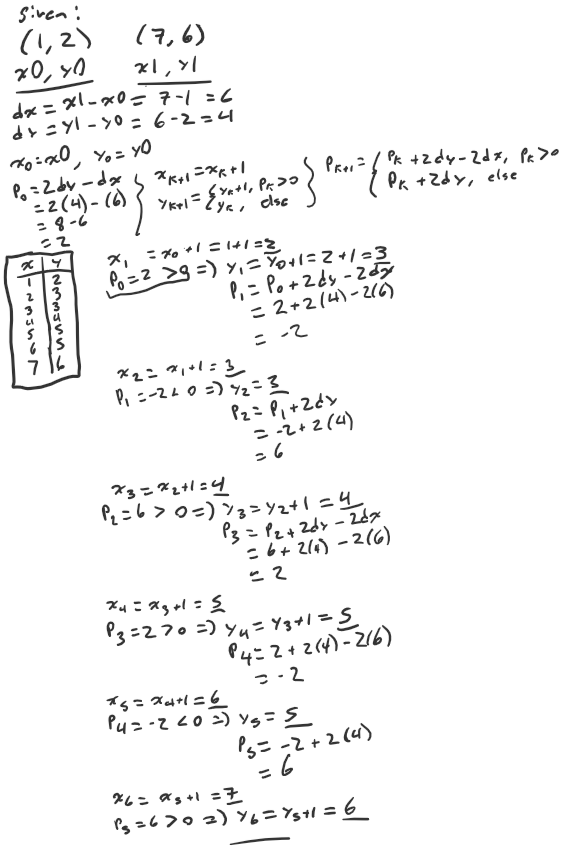 Given:
(1, 2) (7, 6)
x0, y0 x1, y1
dx = x1 - x0 = 7 - 1 = 6
dy = y1 - y0 = 6 - 2 = 4
x₀ = x0, y₀ = y0
P₀ = 2dy - dx
= 2(4) - (6)
= 8 - 6
= 2
xₖ₊₁ = xₖ + 1
yₖ₊₁ = { yₖ + 1, Pₖ > 0
yₖ, else
Pₖ₊₁ = { Pₖ + 2dy - 2dx, Pₖ > 0
Pₖ + 2dy, else
x | y
1 | 2
2 | 3
3 | 3
4 | 4
5 | 5
6 | 5
7 | 6
x₁ = x₀ + 1 = 1 + 1 = 2
P₀ = 2 > 0 => y₁ = y₀ + 1 = 2 + 1 = 3
P₁ = P₀ + 2dy - 2dx
= 2 + 2(4) - 2(6)
= -2
x₂ = x₁ + 1 = 3
P₁ = -2 < 0 => y₂ = 3
P₂ = P₁ + 2dy
= -2 + 2(4)
= 6
x₃ = x₂ + 1 = 4
P₂ = 6 > 0 => y₃ = y₂ + 1 = 4
P₃ = P₂ + 2dy - 2dx
= 6 + 2(4) - 2(6)
= 2
x₄ = x₃ + 1 = 5
P₃ = 2 > 0 => y₄ = y₃ + 1 = 5
P₄ = 2 + 2(4) - 2(6)
= -2
x₅ = x₄ + 1 = 6
P₄ = -2 < 0 => y₅ = 5
P₅ = -2 + 2(4)
= 6
x₆ = x₅ + 1 = 7
P₅ = 6 > 0 => y₆ = y₅ + 1 = 6